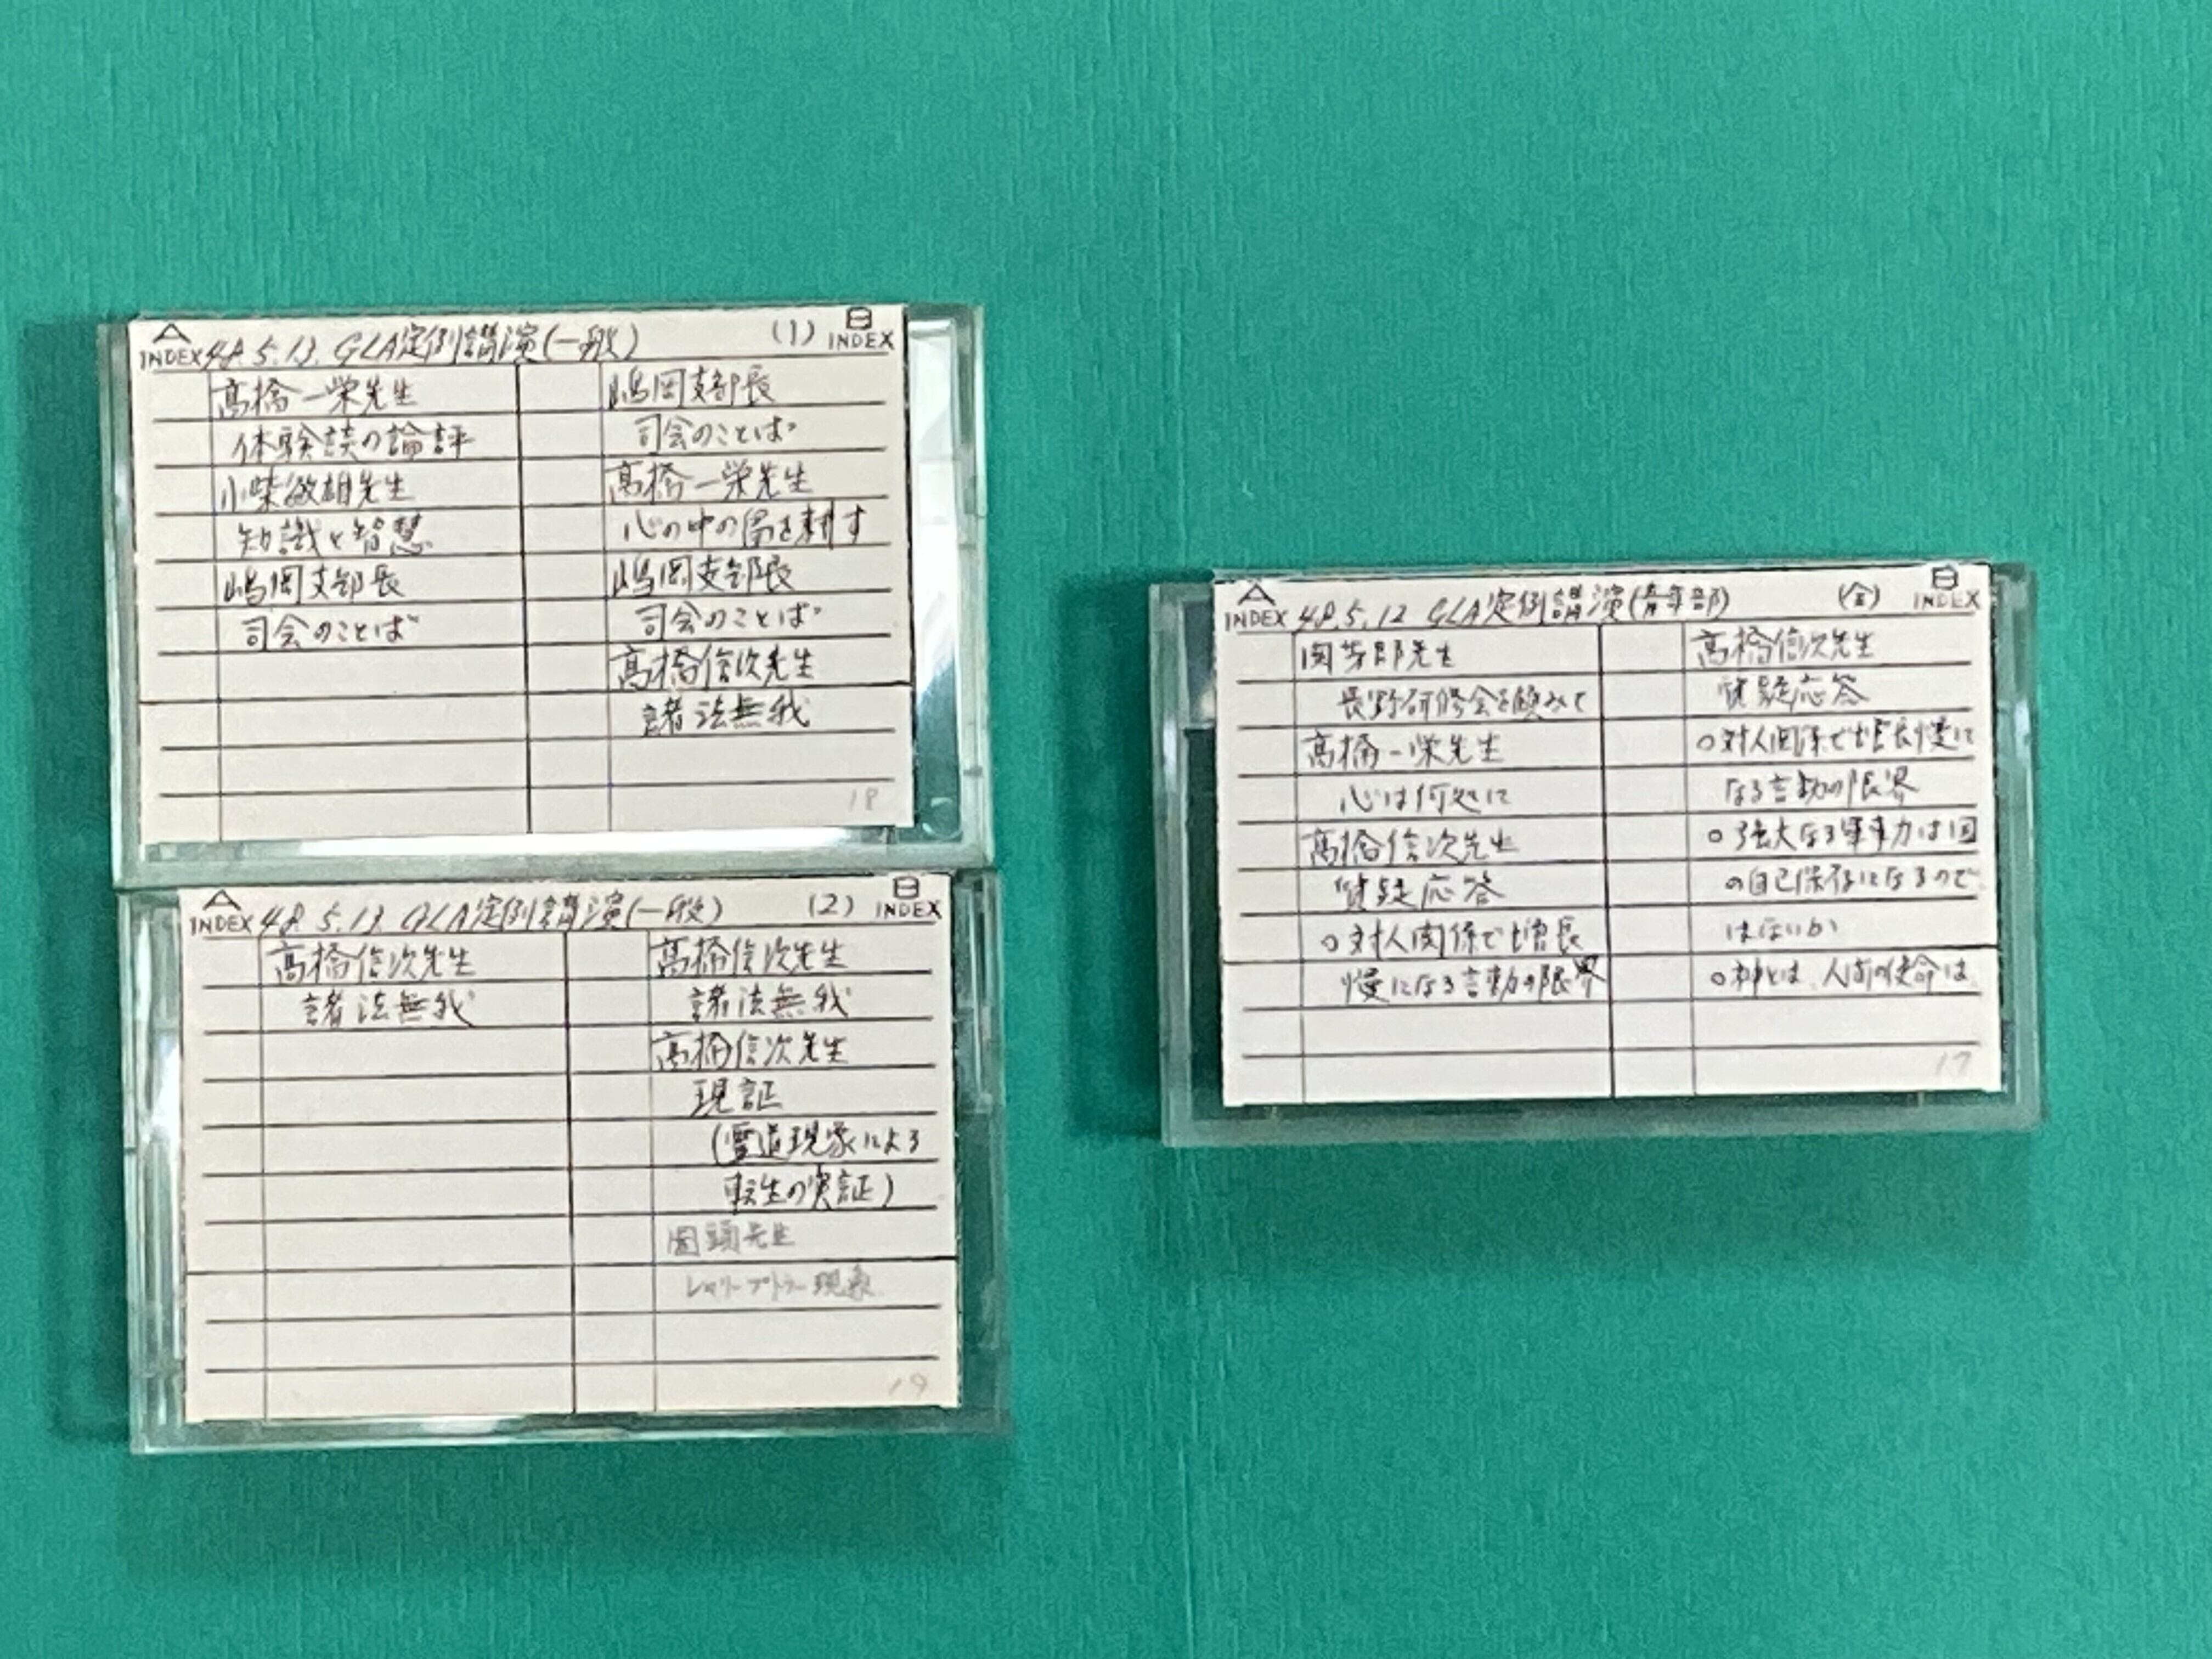 A INDEX 48.5.13. GLA定例講演(一般) (1) B INDEX
高橋一栄先生
体験談の論評
小柴敏雄先生
知識と智慧
嶋岡支部長
司会のことば
嶋岡支部長
司会のことば
高橋一栄先生
心の中の畠を耕す
嶋岡支部長
司会のことば
高橋信次先生
諸法無我
18
A INDEX 48.5.13. GLA定例講演(一般) (2) B INDEX
高橋信次先生
諸法無我
高橋信次先生
諸法無我
高橋信次先生
現証
(霊道現象による
転生の実証)
園頭先生
現象
19
A INDEX 48.5.12 GLA定例講演(青年部) (全) B INDEX
関芳郎先生
長野研修会を顧みて
高橋一栄先生
心は何処に
高橋信次先生
質疑応答
○対人関係で増長
慢になる言動の限界
高橋信次先生
質疑応答
○対人関係で増長慢に
なる言動の限界
○強大なる軍事力は国
の自己保存になるので
はないか
○神とは、人間の使命は
17